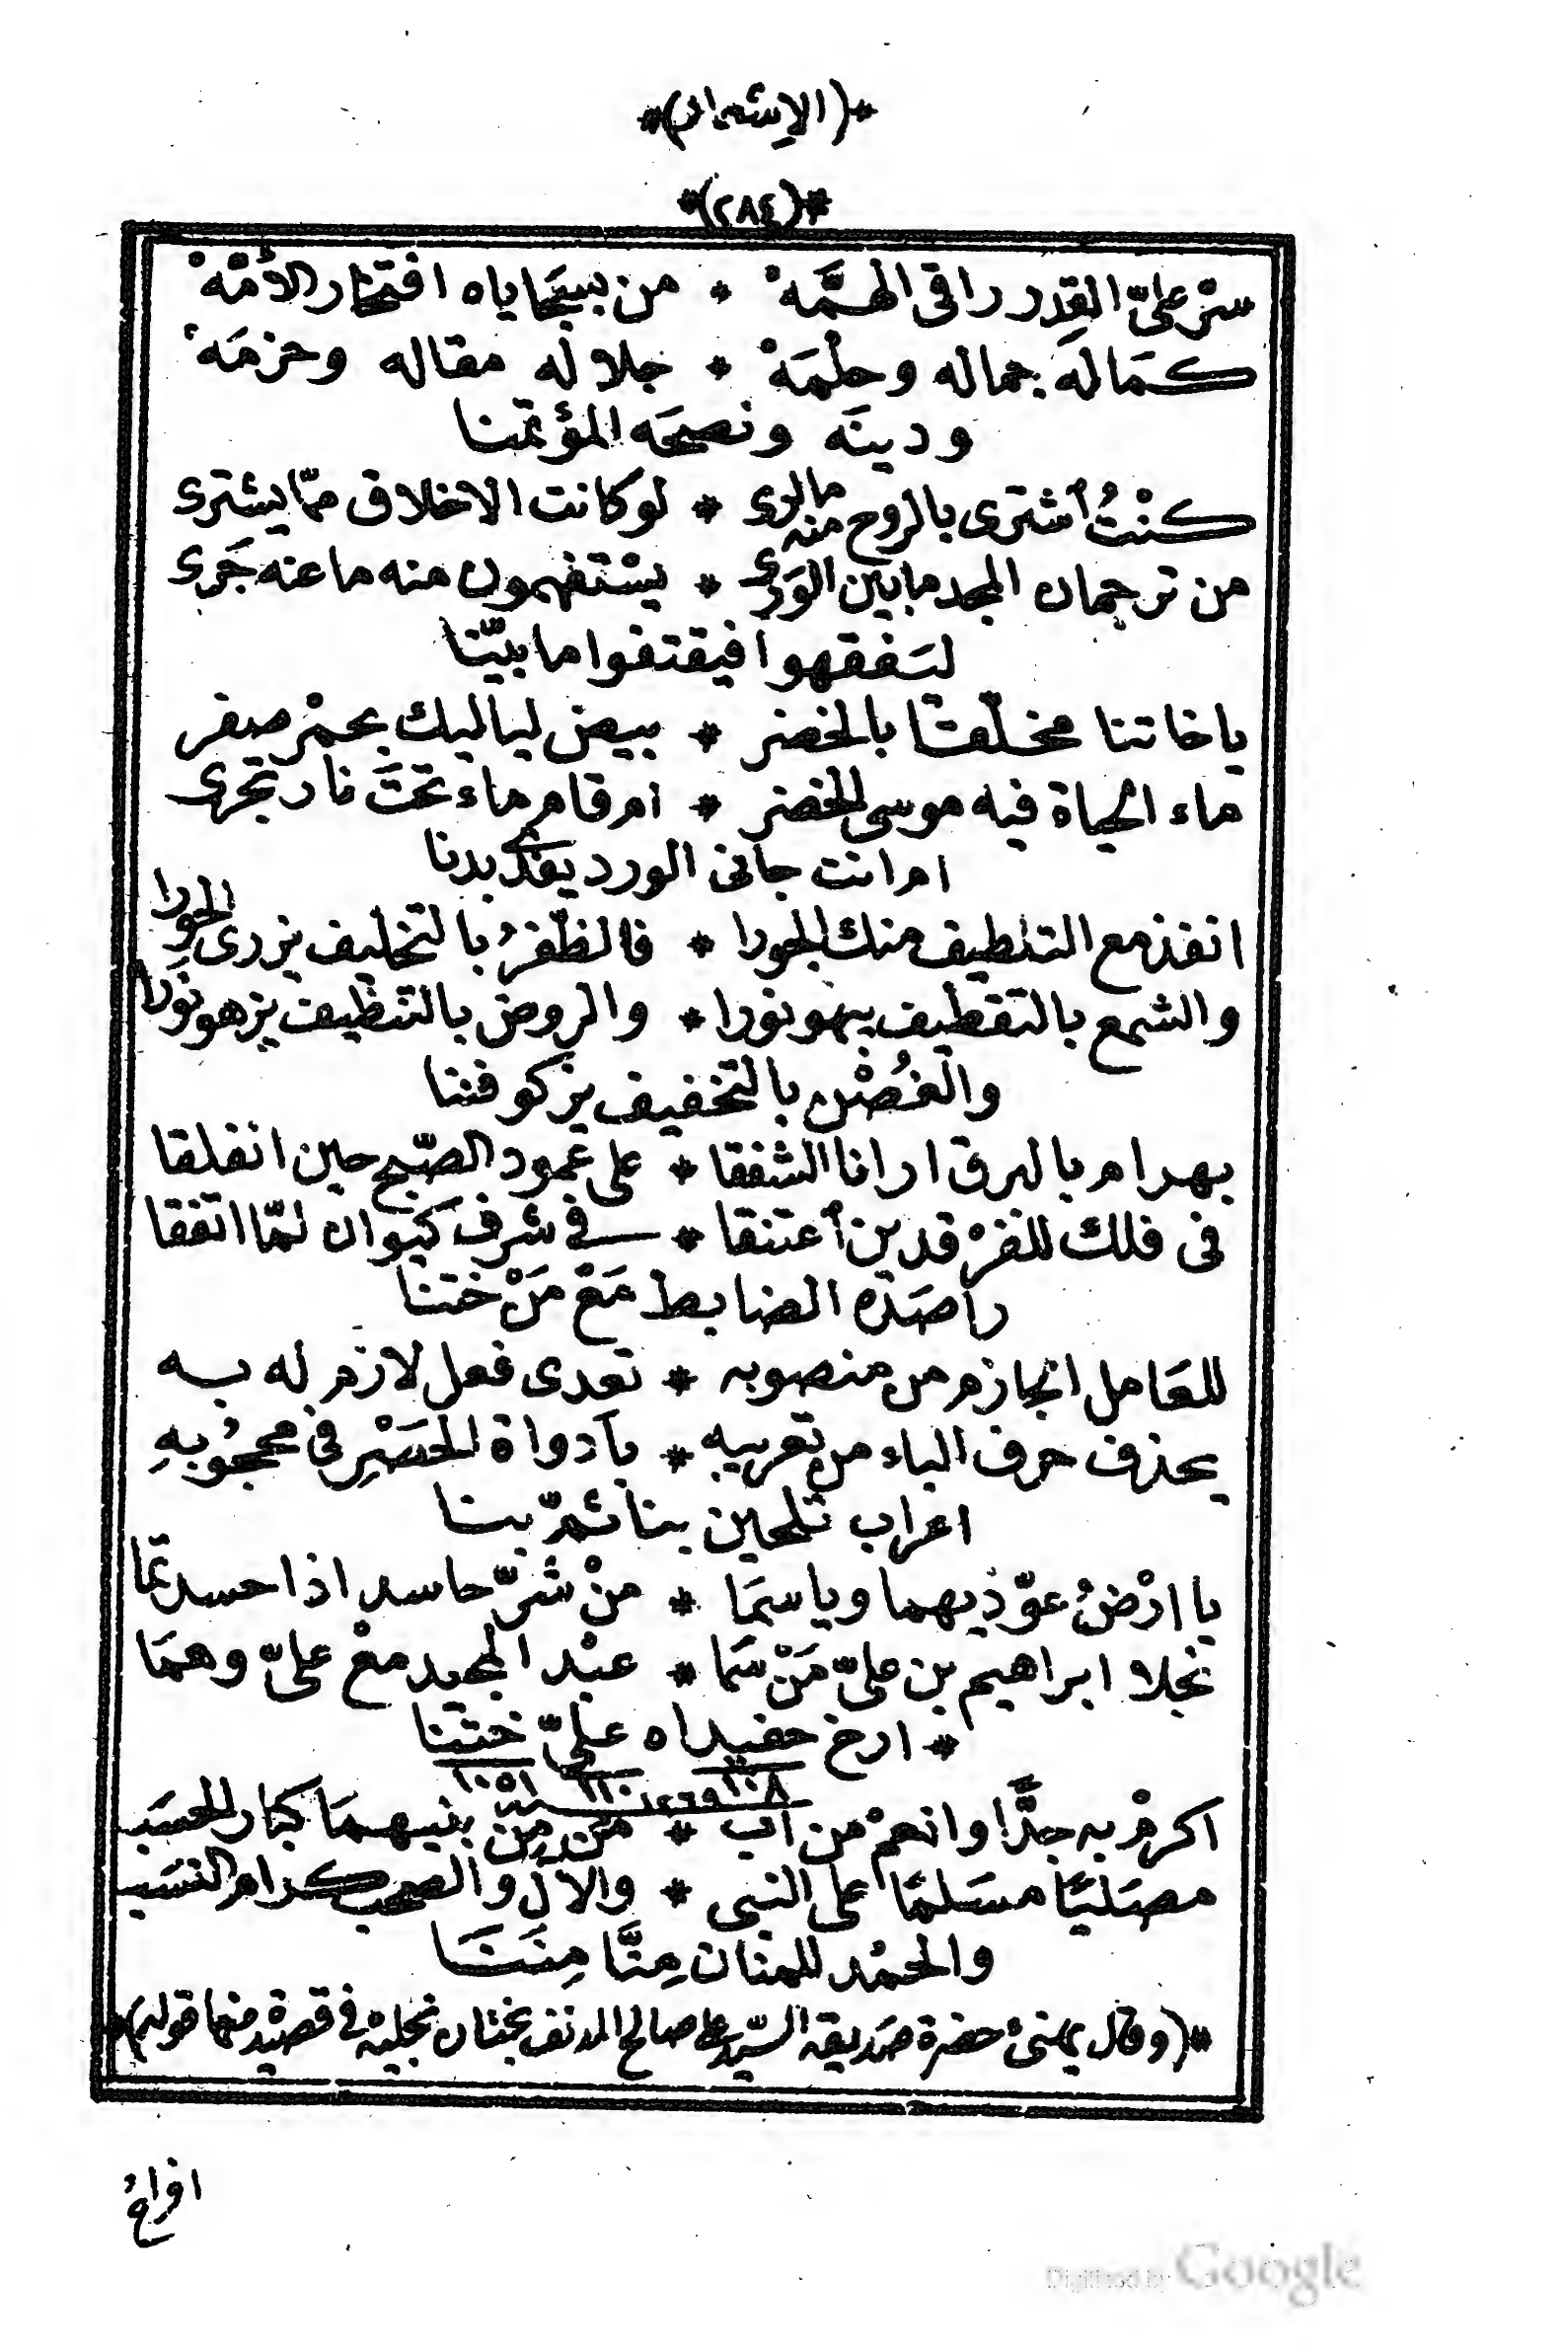 *(الإشعار)*
*(٢٨٤)*
سرْ علىّ القدر راقى الهمَّهْ * من بسجاياه افتخار الأمّهْ
كمَاله جماله وحلْمَهْ * جلاله مقاله وحزمَهْ
ودينَه ونصحَه المؤتمنا
كنْتُ أشترى بالروح منه مالدرى * لوكانت الاخلاق ممّا يشترى
من ترجمان المجد مابين الوَرى * يسْتفهمون منه ما عنه جَرى
لتَفقهوا فيقتفوا ما بيّنا
ياخاتنا مخلّقا بالخضر * ببيض لياليك بحمْر صفر
ماء الحياة فيه موسى الخضر * ام قام ماء تحتَ نار تجرى
ام انت جانى الورد يفدّى بدنا
انفذ مع التلطيف منك الجورا * فالظّفرُ بالتخليف يزرى الحَوِرا
والشمع بالتقطيف يبهو نورا * والروض بالتنظيف يزهو نَورا
والغُصْن بالتخفيف يزكو فننا
بهرام بالبرق ارانا الشفقا * على عمود الصّبح حين انفلقا
فى فلك للفرْقدين أعتنقا * فى شرف كيوان لمّا اتفقا
راصَدَه الضابط مَعْ مَنْ خَتنا
للعَامل الجازم من منصوبه * تعدى فعل لازم له به
يحذف حرف الباء من تعريبه * بآدواة الحَسْرِ فى محجُوبهِ
اعراب تلحين بنا ثمّ بنا
يا ارْضُ عوّذيهما وياسمَا * منْ شرّ حاسد اذا حسد تما
نجلا ابراهيم بن علىّ مَنْ سَما * عبْد المجيد معْ علىّ وهمَا
* ارخ حفيداه علىّ ختنا
١٠٨ ١١٠ ١٠٥١
١٢٦٩ سنة
اكرمْ به جدًّا وانعمْ من اب * مَن مِن بنيهمَا كبار الحسَب
مصَليًا مسَلمًا على النبى * والآل والصحب كرام النسَب
والحمْد للمنان مِنَّا مِنَنَا
*(وقال يهنئ حضرة صديقه السّيد على صالح المدنف بختان نجليه فى قصيدة منها قوله)*
افراحُ
Digitized by Google